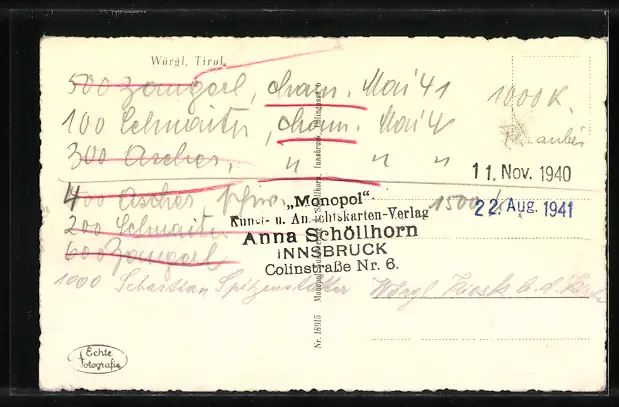 Wörgl, Tirol.
500 Zangerl, cham. Mai 41
1000 K.
100 Schmaiter, cham. Mai 4
300 Ascher, " " "
11. Nov. 1940
400 Ascher
1500
22. Aug. 1941
200 Schmaiter
600 Zangerl
„Monopol“
Kunst- u. Ansichtskarten-Verlag
Anna Schöllhorn
INNSBRUCK
Colinstraße Nr. 6.
1000 Sebastian Wörgl Kiosk b. d.
Nr. 18915 Monopol Schöllhorn, Innsbruck,
Echte
Fotografie